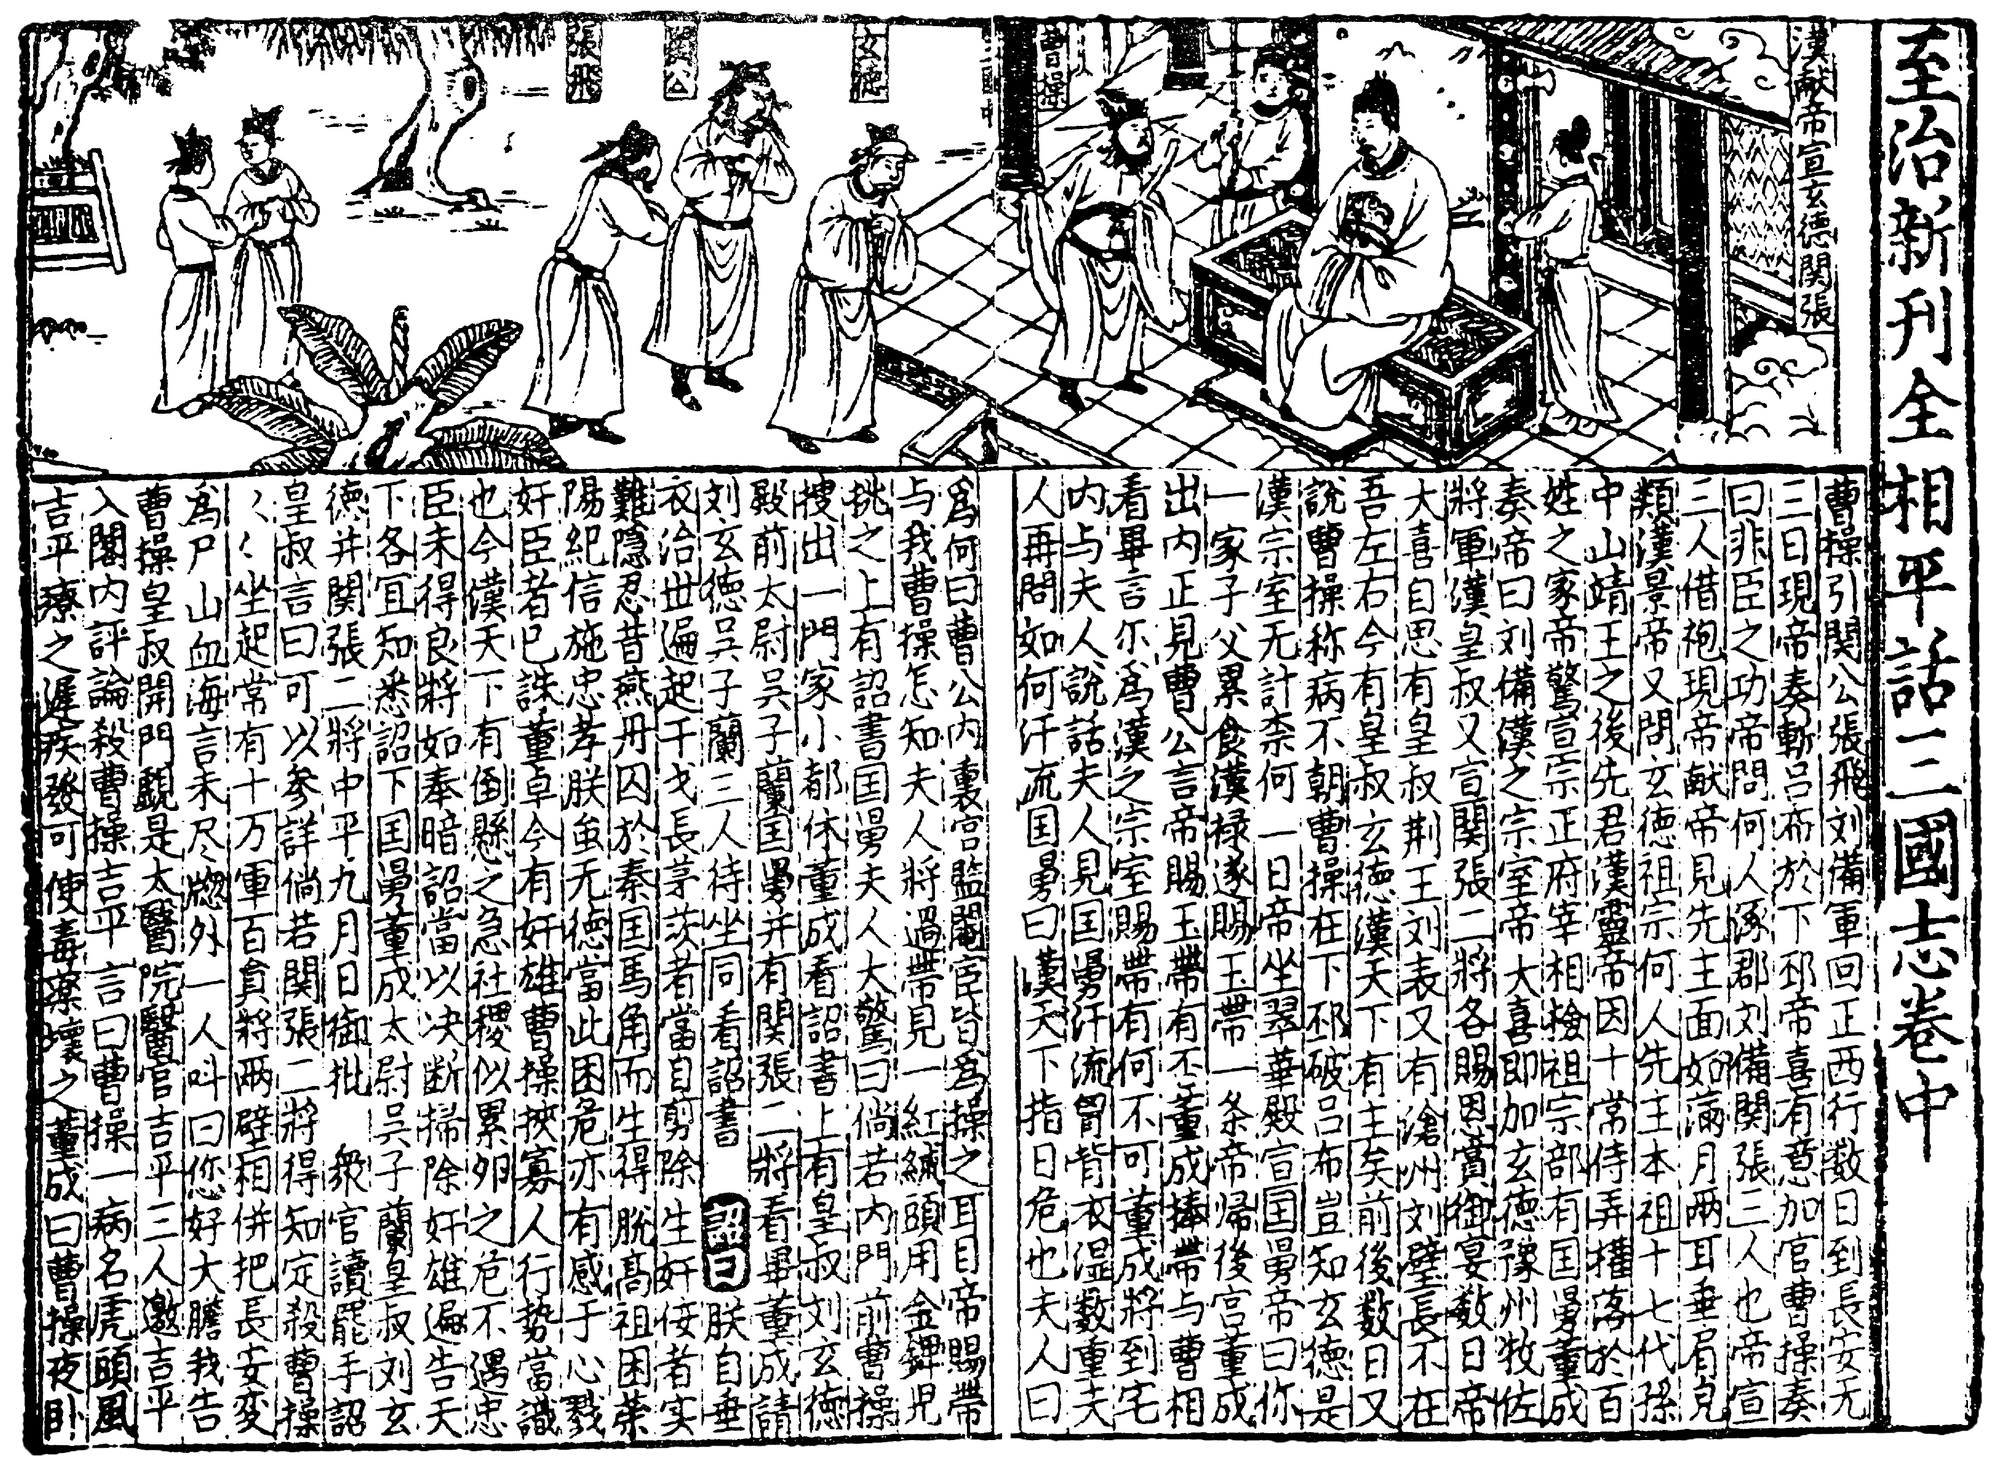 至治新刊全相平話三國志卷中
漢献帝宣玄德関張
曹操
玄德
関公
張飛
曹操引関公張飛刘備軍回正西行数日到長安无
三日現帝奏斬吕布於下邳帝喜有意加官曹操奏
曰非臣之功帝問何人涿郡刘備関張三人也帝宣
三人借袍現帝献帝見先主面如滿月兩耳垂肩皃
類漢景帝又問玄德祖宗何人先主本祖十七代孫
中山靖王之後先君漢靈帝因十常侍弄權落於百
姓之家帝驚宣宗正府宰相檢祖宗部有国舅董成
奏帝曰刘備漢之宗室帝大喜即加玄德豫州牧佐
將軍漢皇叔又宣関張二將各賜恩賞御宴数日帝
大喜自思有皇叔荆王刘表又有滄州刘璧長不在
吾左右今有皇叔玄德漢天下有主矣前後数日又
說曹操称病不朝曹操在下邳破吕布豈知玄德是
漢宗室无計柰何一日帝坐翠華殿宣国舅帝曰你
一家子父累食漢禄遂賜玉帶一条帝歸後宫董成
出内正見曹公言帝賜玉帶有不董成捧帶与曹相
看畢言尓為漢之宗室賜帶有何不可董成將到宅
内与夫人說話夫人見国舅汗流胷背衣湿数重夫
人再問如何汗流国舅曰漢天下指日危也夫人曰
為何曰曹公内裏宫監閹宦皆為操之耳目帝賜帶
与我曹操怎知夫人將過帶見一紅絨頭用金錍児
挑之上有詔書国舅夫人大驚曰倘若内門前曹操
搜出一門家小都休董成看詔書上有皇叔刘玄德
殿前太尉吴子蘭国舅并有関張二將看畢董成請
刘玄德吴子蘭三人待坐同看詔書 詔曰 朕自垂
衣治世遍起干戈長茅茨者當自剪除生奸佞者实
難隐忍昔燕丹囚於秦国馬角而生得脫髙祖困荥
陽紀信施忠孝朕虽无德當此困危亦有感于心戮
奸臣者已誅董卓今有奸雄曹操挾寡人行势當識
也今漢天下有倒懸之急社稷似累卵之危不遇忠
臣未得良將如奉暗詔當以决断掃除奸雄遍告天
下各宜知悉詔下国舅董成太尉吴子蘭皇叔刘玄
德并関張二將中平九月日御批 衆官讀罷手詔
皇叔言曰可以参詳倘若関張二將得知定殺曹操
〻〻坐起常有十万軍百負將兩壁相併把長安变
為尸山血海言未尽牕外一人呌曰你好大膽我告
曹操皇叔開門覷是太醫院醫官吉平三人邀吉平
入閣内評論殺曹操吉平言曰曹操一病名虎頭風
吉平療之遅疾發可使毒薬壞之董成曰曹操夜卧